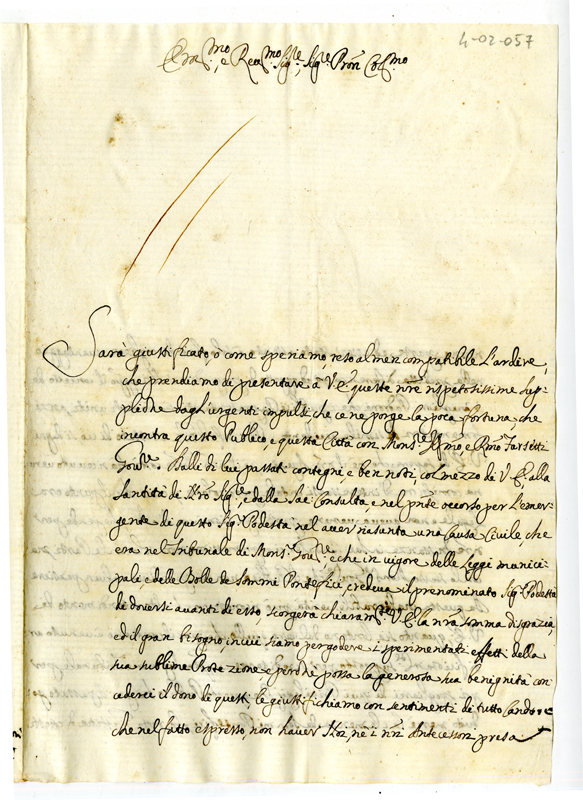 4-02-057
Em.mo, e Rev.mo Sig.re, Sig.re Pron Col.mo
Sarà giustificato, ò come speriamo, reso almen compatibile l'ardire,
che prendiamo di presentare a V. E. queste nre rispetosissime sup-
pliche dagl'urgenti impulsi, che ce ne porge la poca fortuna, che
incontra questo Publico, e questa Città con Mons.re Ill.mo e R.mo Farsetti
Gov.re. Dalli di lui passati contegni, e ben noti, col mezzo di V. E. alla
Santità di Nro Sig.re, e della Sac. Consulta, e nel pnte occorso per l'emer-
gente di questo Sig.r Podestà nel aver riasunta una Causa Civile, che
era nel Tribunale di Mons.r Gov.re, e che in vigore delle Leggi munici-
pali, e delle Bolle de Sommi Pontefici, credeva il prenominato Sig.r Podestà
di doversi avanti di esso, scorgerà chiaram.te V. E. la nrà somma disgrazia,
ed il gran bisogno, in cui siamo per godere i sperimentati effetti della
sua sublime Protezione, e perche possa la generosa sua benignità con
cederci il dono di questi, le giustifichiamo con sentimenti di tutto candore
che nel fatto espresso, non haver Noi, nè i nri Antecessori presa